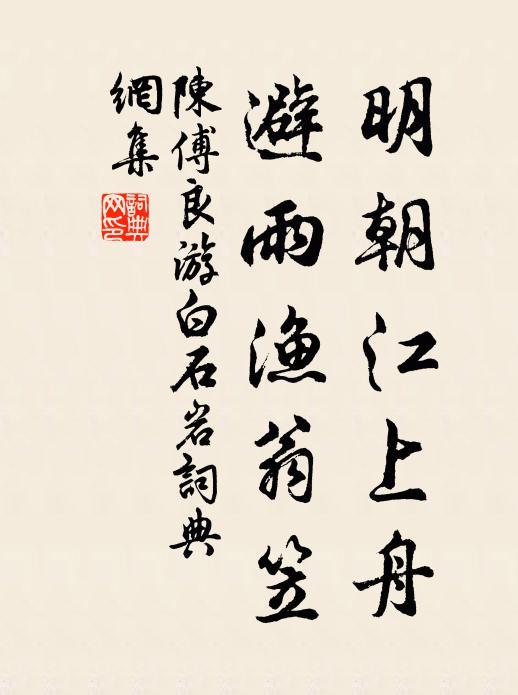 明朝江上舟
避雨渔翁笠
陳傅良游白石岩詞典
網集
詞典
网印